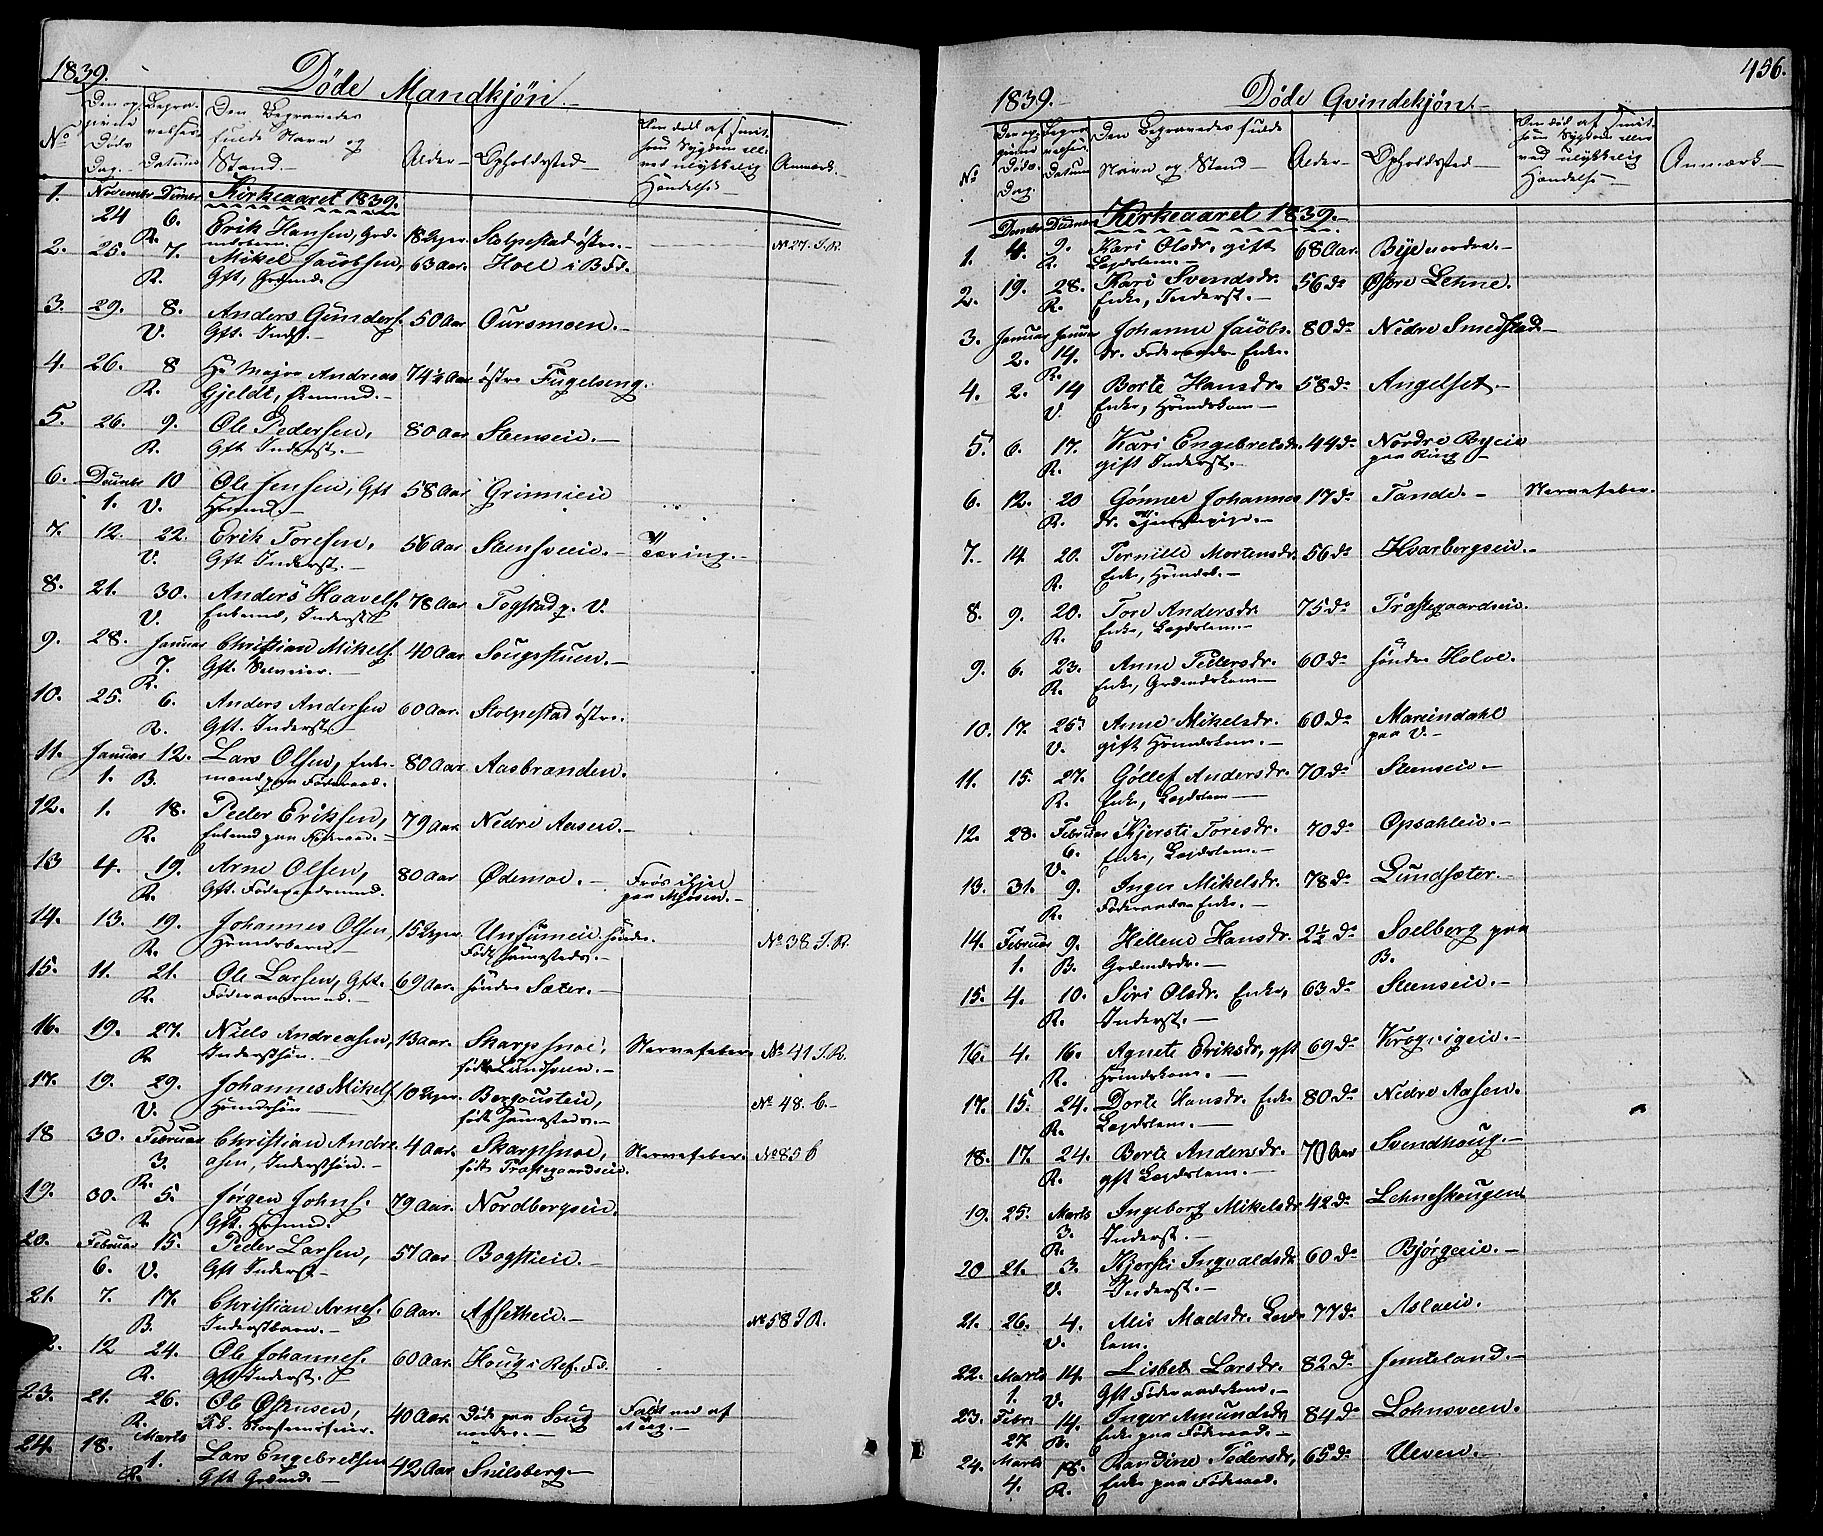 1839.
Döde Mandkjön.
No
Den opgivne Döds Dag.
Begravelsens Datum
Den Begravedes fulde Navn og Stand.
Alder
Opholdssted
Om död af smitsom Sygdom eller ved ulykkelig Hændelse
Anmærk.
Kirkeaaret 1839.
1. November 24 December 6. R. Erik Hansen, 18 Uger. Stolpestad östre. No 27. I. R.
2. 25. 7. R. Mikel Jacobsen, Gft, 63 Aar. Hoel i B. Fd.
3. 29. 8. V. Anders Gunders. Gft. Indst. 50 Aar Oursmoen.
4. 26. 8 R. Hr Major Andreas Gjeldt, 74½ Aar östre Fugelseng.
5. 26. 9. R. Ole Pedersen, Gft Inderst. 80 Aar Steenseie.
6. December 1. 10 V. Ole Jensen, Gft Hmmd. 58 Aar Grimmieie
7. 12. 22. V. Erik Toresen, Gft Inderst. 56 Aar Steensveie. Tæring.
8. 21. 30. V. Anders Haavels. Enkemd, Inderst 78 Aar Togstad p. V.
9. 28. Januar 7. R. Christian Mikels. Gft. 40 Aar Sougstuen.
10. 25. 6. R. Anders Andersen Gft. Inderst. 60 Aar. Stolpestad östre.
11. Januar 1. 12. B. Lars Olsen, Enkemand paa Föderaad. 80 Aar Aasbranden.
12. 1. 18. R. Peder Eriksen, Enkemd paa Föderaad. 79 Aar Nedre Aasen.
13 4. 19. R. Arne Olsen, Gft. Föderaadsmand. 80 Aar Ödemoe. Frös ihjel paa Mjösen.
14. 13. 19. R. Johannes Olsen, Hmmdsbarn 15 Uger. söndre. Född sammesteds. No 38 I. R.
15. 11. 21. R. Ole Larsen, Gft. Föderaadsmand. 69 Aar. söndre Sæter.
16. 19. 27. R. Niels Andreasen, Inderstsön. 13 Aar. Skarpsnoe, född Lundsveen. Nervefeber. No 41 I. R.
17. 19. 29. V. Johannes Mikels. Hmmdssön 10 Uger. född sammesteds. No 48. b.
18 30. Februar 3. R. Christian Andreasen, Inderstsön. 4 Aar. Skarpsnoe, född Træstegaardseie. Nervefeber. No 85 b
19. 30. 5. R. Jörgen Johns. Gft. Hmmd. 79 Aar. Nordbergseie.
20. Februar 6. 15. V. Peder Larsen, Gft Inderst 57 Aar Bogstieie.
21. 7. 17. B. Christian Arnes. Inderstbarn. 6 Aar. Afsetheie. No 58 I R.
2. 12 24. R. Ole Johannes. Gft Inderst. 60 Aar. Houg i Ref. Fd.
23. 21. 26. R. Ole 40 Aar. Död paa Soug nordre. Fald ned af
24. 18. Marts 1. R. Lars Engebretsen Gft 42 Aar Snilsberg.
456.
1839.
Döde Qvindekjön.
No
Den opgivne Döds Dag.
Begravelsens Datum
Den Begravedes fulde Navn og Stand.
Alder
Opholdssted
Om död af smitsom Sygdom eller ved ulykkelig Hændelse
Anmærk
Kirkeaaret 1839.
1. December 4. December 9. R. Kari Olsdr. gift Lægdslem. 68 Aar. Bye nordre.
2. 19. 28. R. Kari Svendsdr. Enke, Inderst. 56 do Öfre Lehne.
3. Januar 2. Januar 14. R. Johanne Jacobsdr. Föderaads Enke. 80 do Nedre Smedstad
4. 2. 14 V. Borte Hansdr. Enke, Hmmdskone 58 do Angelset
5. 6. 17. R. Kari Engebretsdr. gift Inderst. 44 do Nordre Byeie paa Ring
6. 12. 20 R. Gönner Johannesdr. Tjenestepige. 17 do Tande. Nervefeber.
7. 14 20. R. Pernille Mortensdr. Enke, 56 do Hvarbergseie.
8. 9. 20. R. Tore Andersdr. Enke, Lægdslem. 75 do Træstegaardseie.
9. 6. 23. R. Anne Pedersdr. Enke, Grdmdskone 60 do söndre Holve.
10. 17. 25. V. Anne Mikelsdr. gift Hmmdskone. 60 do Mariendahl paa V.
11. 15. 27. R. Göllef Andersdr. Enke, Lægdslem 70 do Steenseie
12. 28. Februar 6. V. Kjersti Toresdr. Enke, Lægdslem. 70 do Opsahleie.
13. 31. 9. R. Inger Mikelsdr. Föderaads Enke. 78 do Lundsæter.
14. Februar 1. 9. B. Hellene Hansdr. 2½ do Soelberg paa B.
15. 4. 10. R. Siri Olsdr. Enke, Inderst. 63 do Steenseie.
16. 4. 16. R. Agnete Eriksdr. gft Hmmdskone. 69 do
17. 15. 24. R. Dorte Hansdr. Enke Lægdslem. 80 do Nedre Aasen.
18. 17. 24. R. Borte Andersdr. gft Lægdslem. 70 Aar Svendhoug.
19. 25. Marts 3. R. Ingeborg Mikelsdr Inderst. 42 do Lehneskougen
20 21. 3. V. Kjersti Ingvaldsdr Inderst. 60 do Björgeeie.
21. 26. 4. V. Alis Madsdr. Lægdslem. 77 do Aslaeie.
22. Marts 1. 14. V. Lisbet Larsdr. Gft Föderaadskone. 82 do Jemteland.
23. Febr. 27 14. R. Inger Amundsdr Enke paa Föderaad. 84 do Lohnsveen.
24. Marts 4. 18. R. Randine Pedersdr, Enke paa Föderaad. 65 do Ulven.